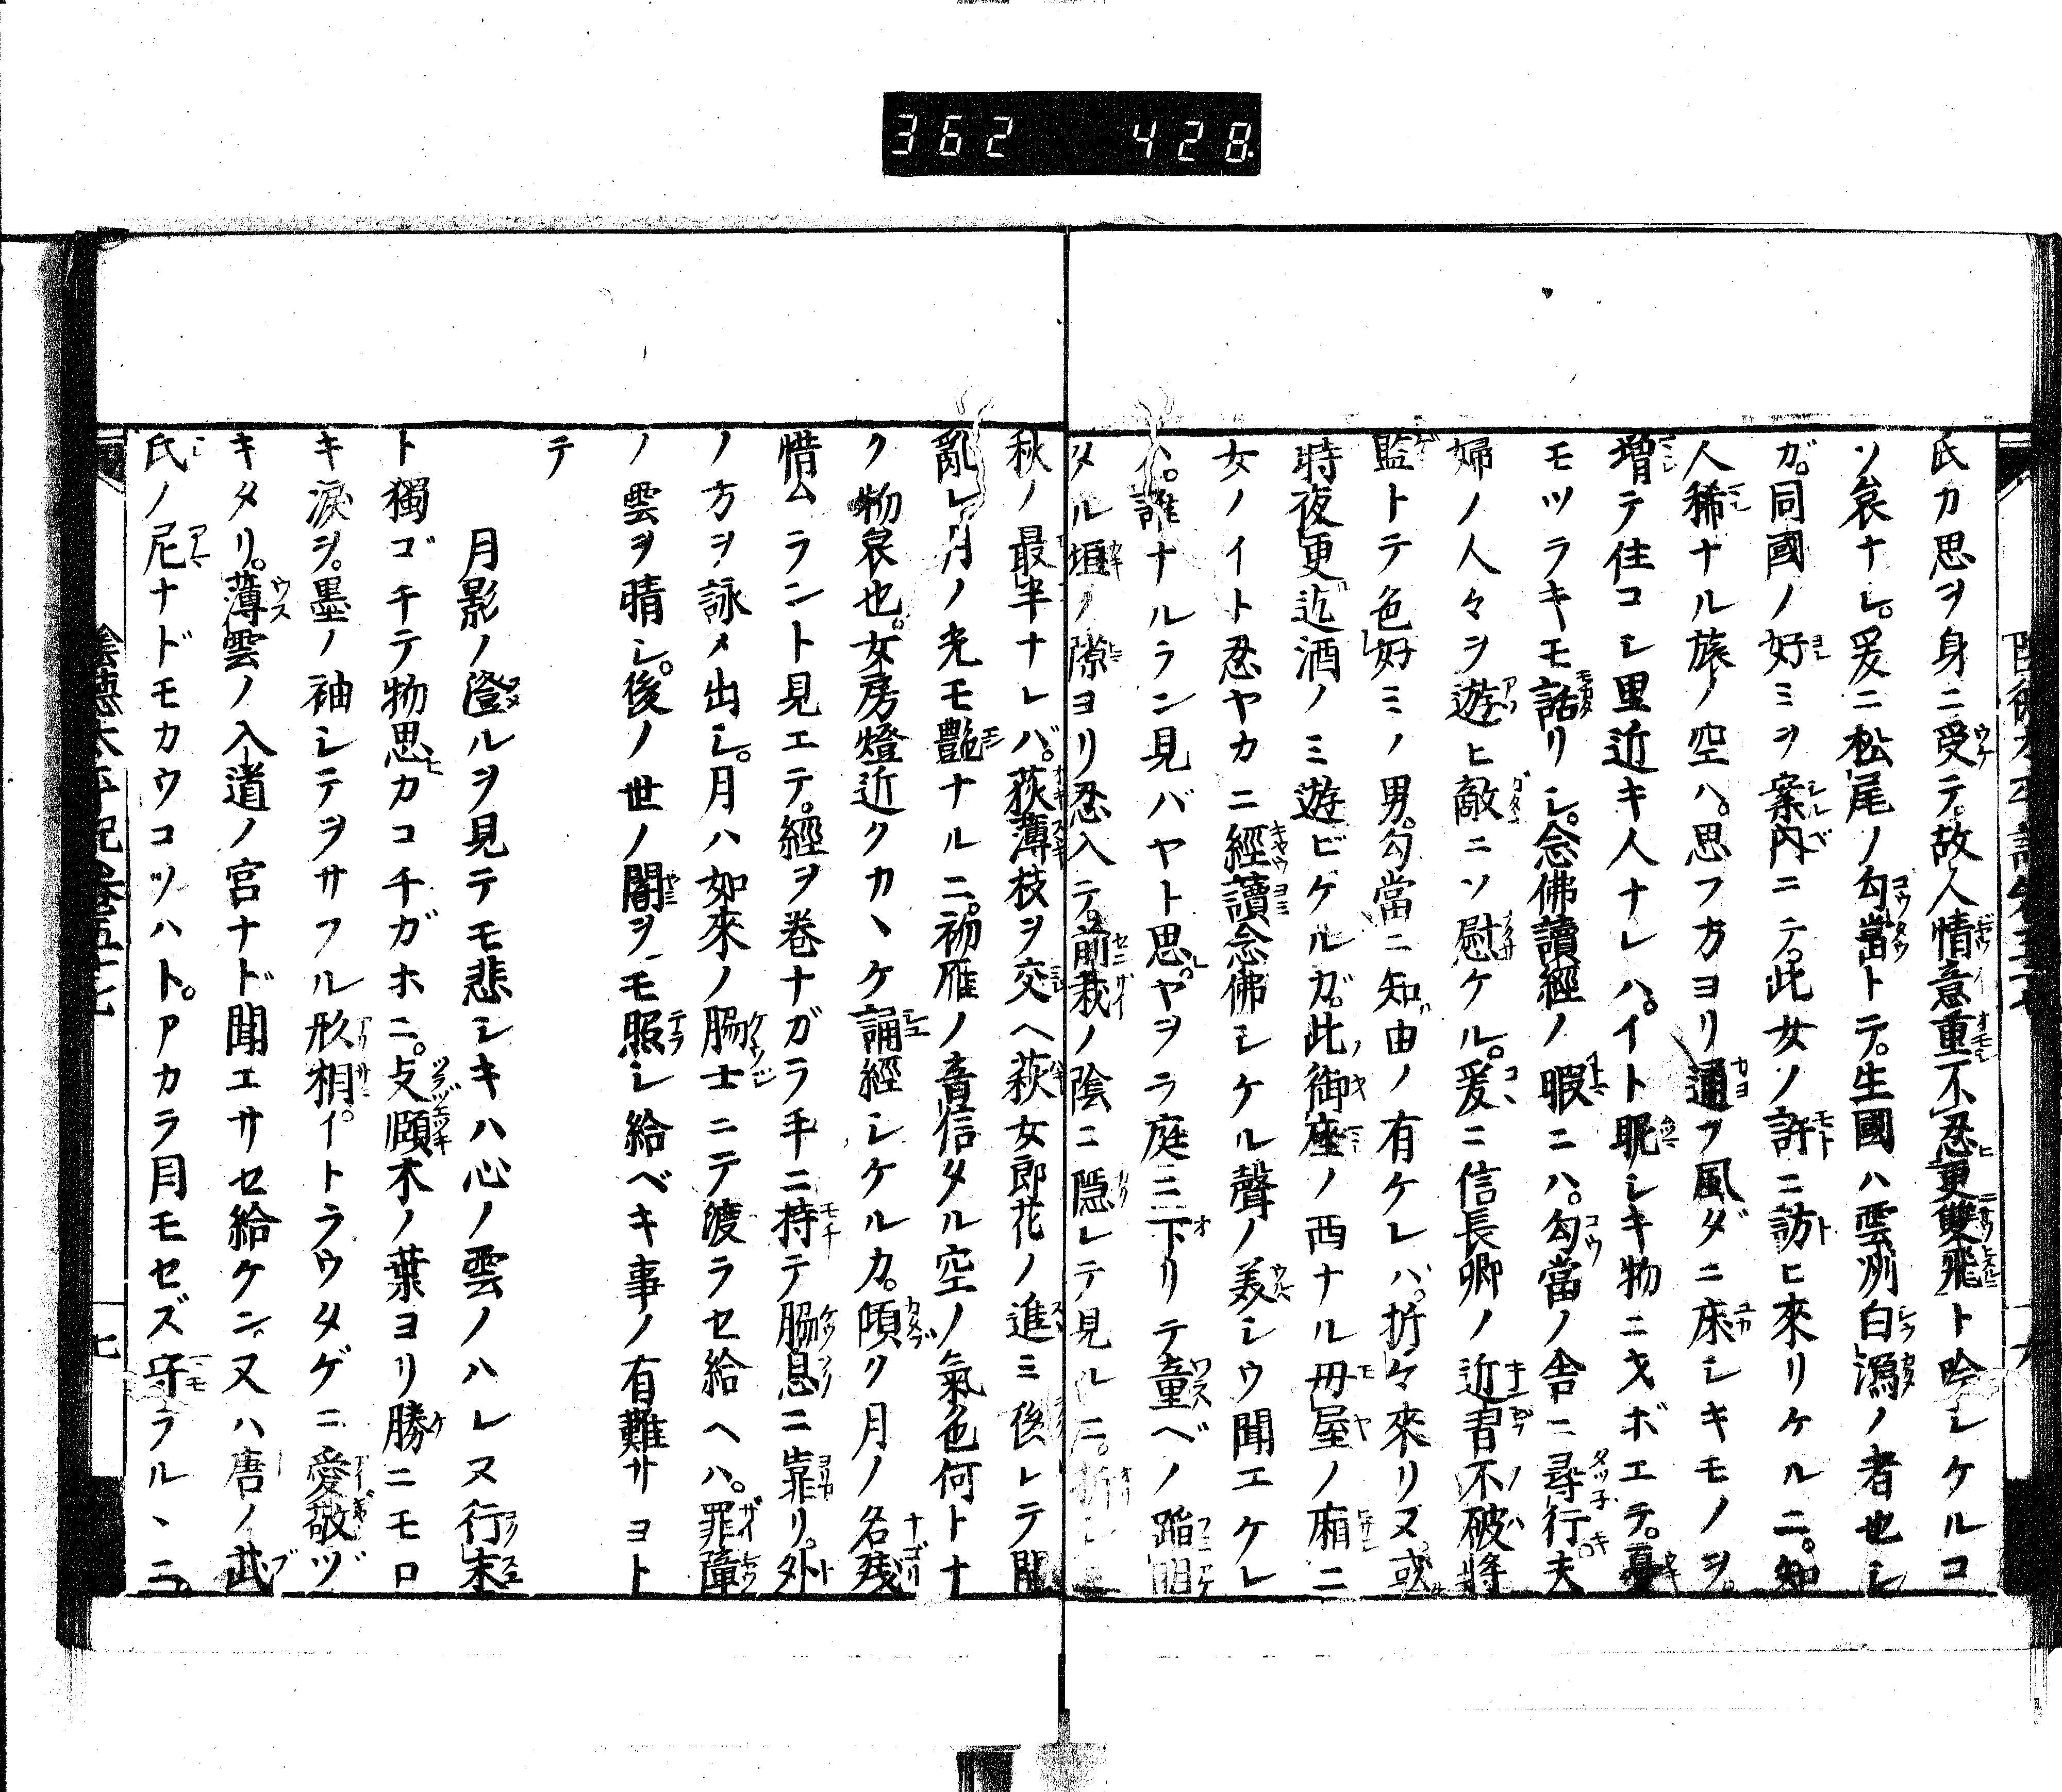 362 428
氏カ思ヲ身ニ受テ。故人情意重不忍更雙飛ト吟シケルコ
ソ哀ナレ。爰ニ松尾ノ勾當トテ。生國ハ雲州白潟ノ者也シ
ガ。同國ノ好ミヲ案内ニテ。此女ノ許ニ訪ヒ來リケルニ。知
人稀ナル旅ノ空ハ。思フ方ヨリ通フ風ダニ床シキモノヲ。
増テ住コシ里近キ人ナレハ。イト眤シキ物ニヲボエテ。憂
モツラキモ語リシ。念佛讀經ノ暇ニハ。勾當ノ舎ニ尋行夫
婦ノ人々ヲ遊ヒ敵ニソ慰ケル。爰ニ信長卿ノ近習不破將
監トテ色好ミノ男。勾當ニ知由ノ有ケレバ。折々來リヌ。或
時夜更迄酒ノミ遊ビケルガ。此御座ノ西ナル母屋ノ廂ニ
女ノイト忍ヤカニ經讀念佛シケル聲ノ美シウ聞エケレ
ハ。誰ナルラン見バヤト思。ヤヲラ庭ニ下リテ童ベノ踏明
タル垣ノ隙ヨリ忍入テ。前栽ノ陰ニ隱レテ見ルニ。折シモ
秋ノ最半ナレバ。荻薄枝ヲ交ヘ萩女郎花ノ進ミ後レテ開
亂レ月ノ光モ艶ナルニ。初雁ノ音信タル空ノ氣色何トナ
ク物哀也。女房燈近クカヽケ誦經シケルカ。傾ク月ノ名殘
惜ムラント見エテ。經ヲ巻ナガラ手ニ持テ脇息ニ靠リ。外
ノ方ヲ詠メ出シ。月ハ如來ノ脇士ニテ渡ラセ給ヘハ。罪障
ノ雲ヲ晴シ。後ノ世ノ闇ヲモ照シ給ベキ事ノ有難サヨト
テ
月影ノ澄ルヲ見テモ悲シキハ心ノ雲ノハレヌ行末
ト獨ゴチテ物思カコチガホニ。攴頤木ノ葉ヨリ勝ニモロ
キ涙ヲ。墨ノ袖シテヲサフル形相。イトラウタゲニ愛敬ヅ
キタリ。薄雲ノ入道ノ宮ナド聞エサセ給ケン。又ハ唐ノ武
氏ノ尼ナドモカウコソハト。アカラ月モセズ守ラルヽニ。
陰德太平記卷五十七
七